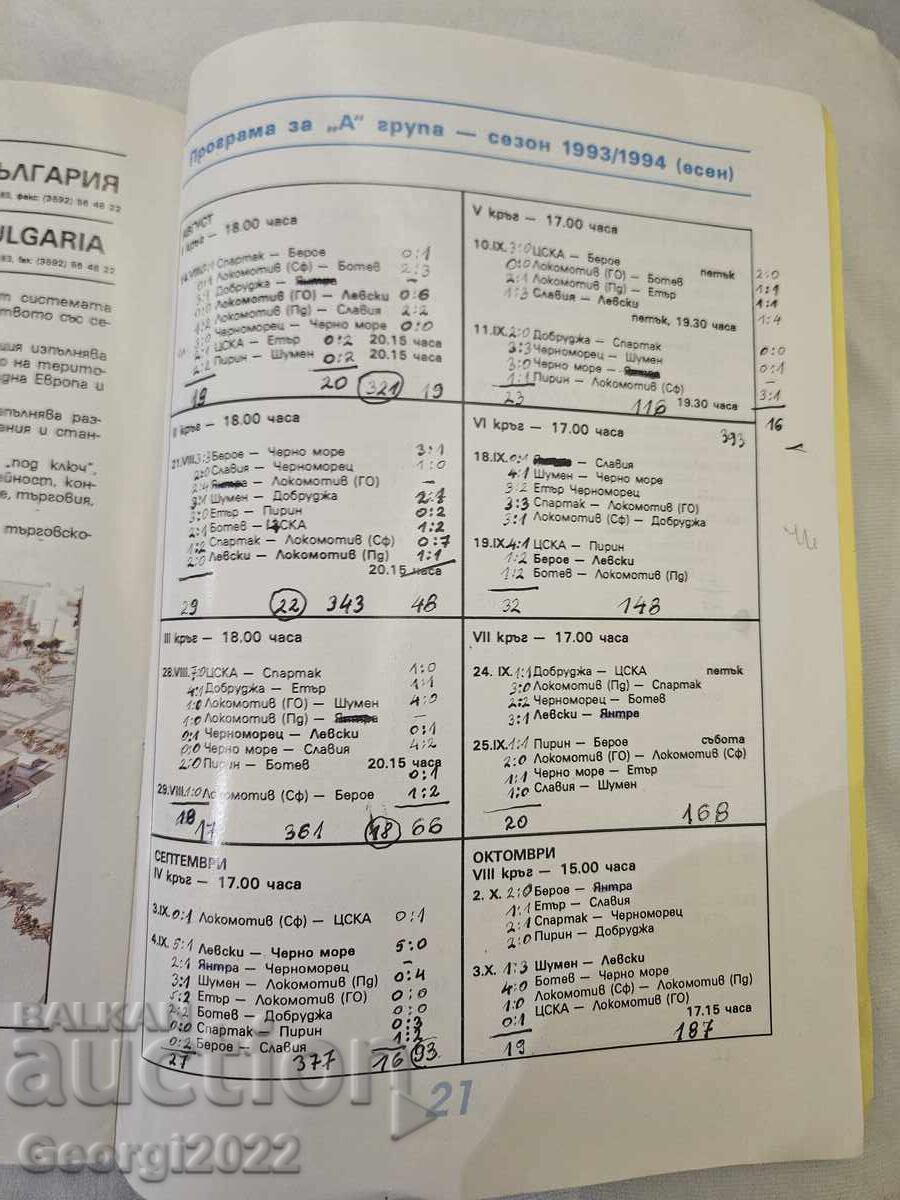 ЪЛГАРИЯ
факс (3592) 56 48 22
ULGARIA
fax: (3592) 56 48 22
т системата
твото със се-
ция изпълнява
о на терито-
дна Европа и
пълнява раз-
ения и стан-
„под ключ",
йност, кон-
е, търговия,
търговско-
Програма за „А" група — сезон 1993/1994 (есен)
АВГУСТ
I кръг — 18.00 часа
Спартак — Берое 0:1
0:1 Локомотив (Сф) — Ботев 2:3
3:1 Добруджа — Янтра
0:0 Локомотив (ГО) — Левски 0:6
1:2 Локомотив (Пд) — Славия 2:2
Черноморец — Черно море 0:0
2:1 ЦСКА — Етър 0:2 20.15 часа
2:1 Пирин — Шумен 0:2 20.15 часа
19 20 321 19
II кръг — 18.00 часа
21.VIII. 3:3 Берое — Черно море 3:1
2:0 Славия — Черноморец 1:0
2:4 Янтра — Локомотив (ГО) —
3:1 Шумен — Добруджа 2:1
3:0 Етър — Пирин 0:2
2:1 Ботев — ЦСКА 1:2
1:2 Спартак — Локомотив (Сф) 0:7
2:0 Левски — Локомотив (Пд) 1:1
20.15 часа
29 22 343 48
III кръг — 18.00 часа
28.VIII. 7:0 ЦСКА — Спартак 1:0
4:1 Добруджа — Етър 1:1
1:0 Локомотив (ГО) — Шумен 4:0
1:0 Локомотив (Пд) — Янтра —
0:1 Черноморец — Левски 0:1
0:0 Черно море — Славия 4:2
2:0 Пирин — Ботев 20.15 часа
0:1
29.VIII. 1:0 Локомотив (Сф) — Берое 1:2
18 361 18 66
СЕПТЕМВРИ
IV кръг — 17.00 часа
3.IX. 0:1 Локомотив (Сф) — ЦСКА 0:1
4.IX. 5:1 Левски — Черно море 5:0
2:1 Янтра — Черноморец —
3:1 Шумен — Локомотив (Пд) 0:4
5:2 Етър — Локомотив (ГО) 0:0
2:2 Ботев — Добруджа 0:0
0:0 Спартак — Пирин 0:3
0:2 Берое — Славия 1:2
27 377 16 93
V кръг — 17.00 часа
10.IX. 3:0 ЦСКА — Берое петък 2:0
0:0 Локомотив (ГО) — Ботев 1:1
2:1 Локомотив (Пд) — Етър 1:1
1:3 Славия — Левски 1:4
петък, 19.30 часа
11.IX. 2:0 Добруджа — Спартак 0:0
3:3 Черноморец — Шумен 0:1
3:0 Черно море — Янтра —
1:1 Пирин — Локомотив (Сф) 3:1
23 116 19.30 часа 16
VI кръг — 17.00 часа 393
18.IX. 0:1 Янтра — Славия
4:1 Шумен — Черно море
3:2 Етър Черноморец
3:3 Спартак — Локомотив (ГО)
3:1 Локомотив (Сф) — Добруджа
19.IX. 4:1 ЦСКА — Пирин
1:2 Берое — Левски
1:2 Ботев — Локомотив (Пд)
32 148
VII кръг — 17.00 часа
24. IX. 1:1 Добруджа — ЦСКА петък
3:0 Локомотив (Пд) — Спартак
2:2 Черноморец — Ботев
3:1 Левски — Янтра
25.IX. 1:1 Пирин — Берое събота
2:0 Локомотив (ГО) — Локомотив (Сф)
1:1 Черно море — Етър
1:0 Славия — Шумен
20 168
ОКТОМВРИ
VIII кръг — 15.00 часа
2. X. 2:0 Берое — Янтра
1:1 Етър — Славия
2:1 Спартак — Черноморец
2:0 Пирин — Добруджа
3.X. 1:3 Шумен — Левски
4:0 Ботев — Черно море
1:0 Локомотив (Сф) — Локомотив (Пд)
0:1 ЦСКА — Локомотив (ГО)
17.15 часа
19 187
21
BALKAN
auction
Georgi2022